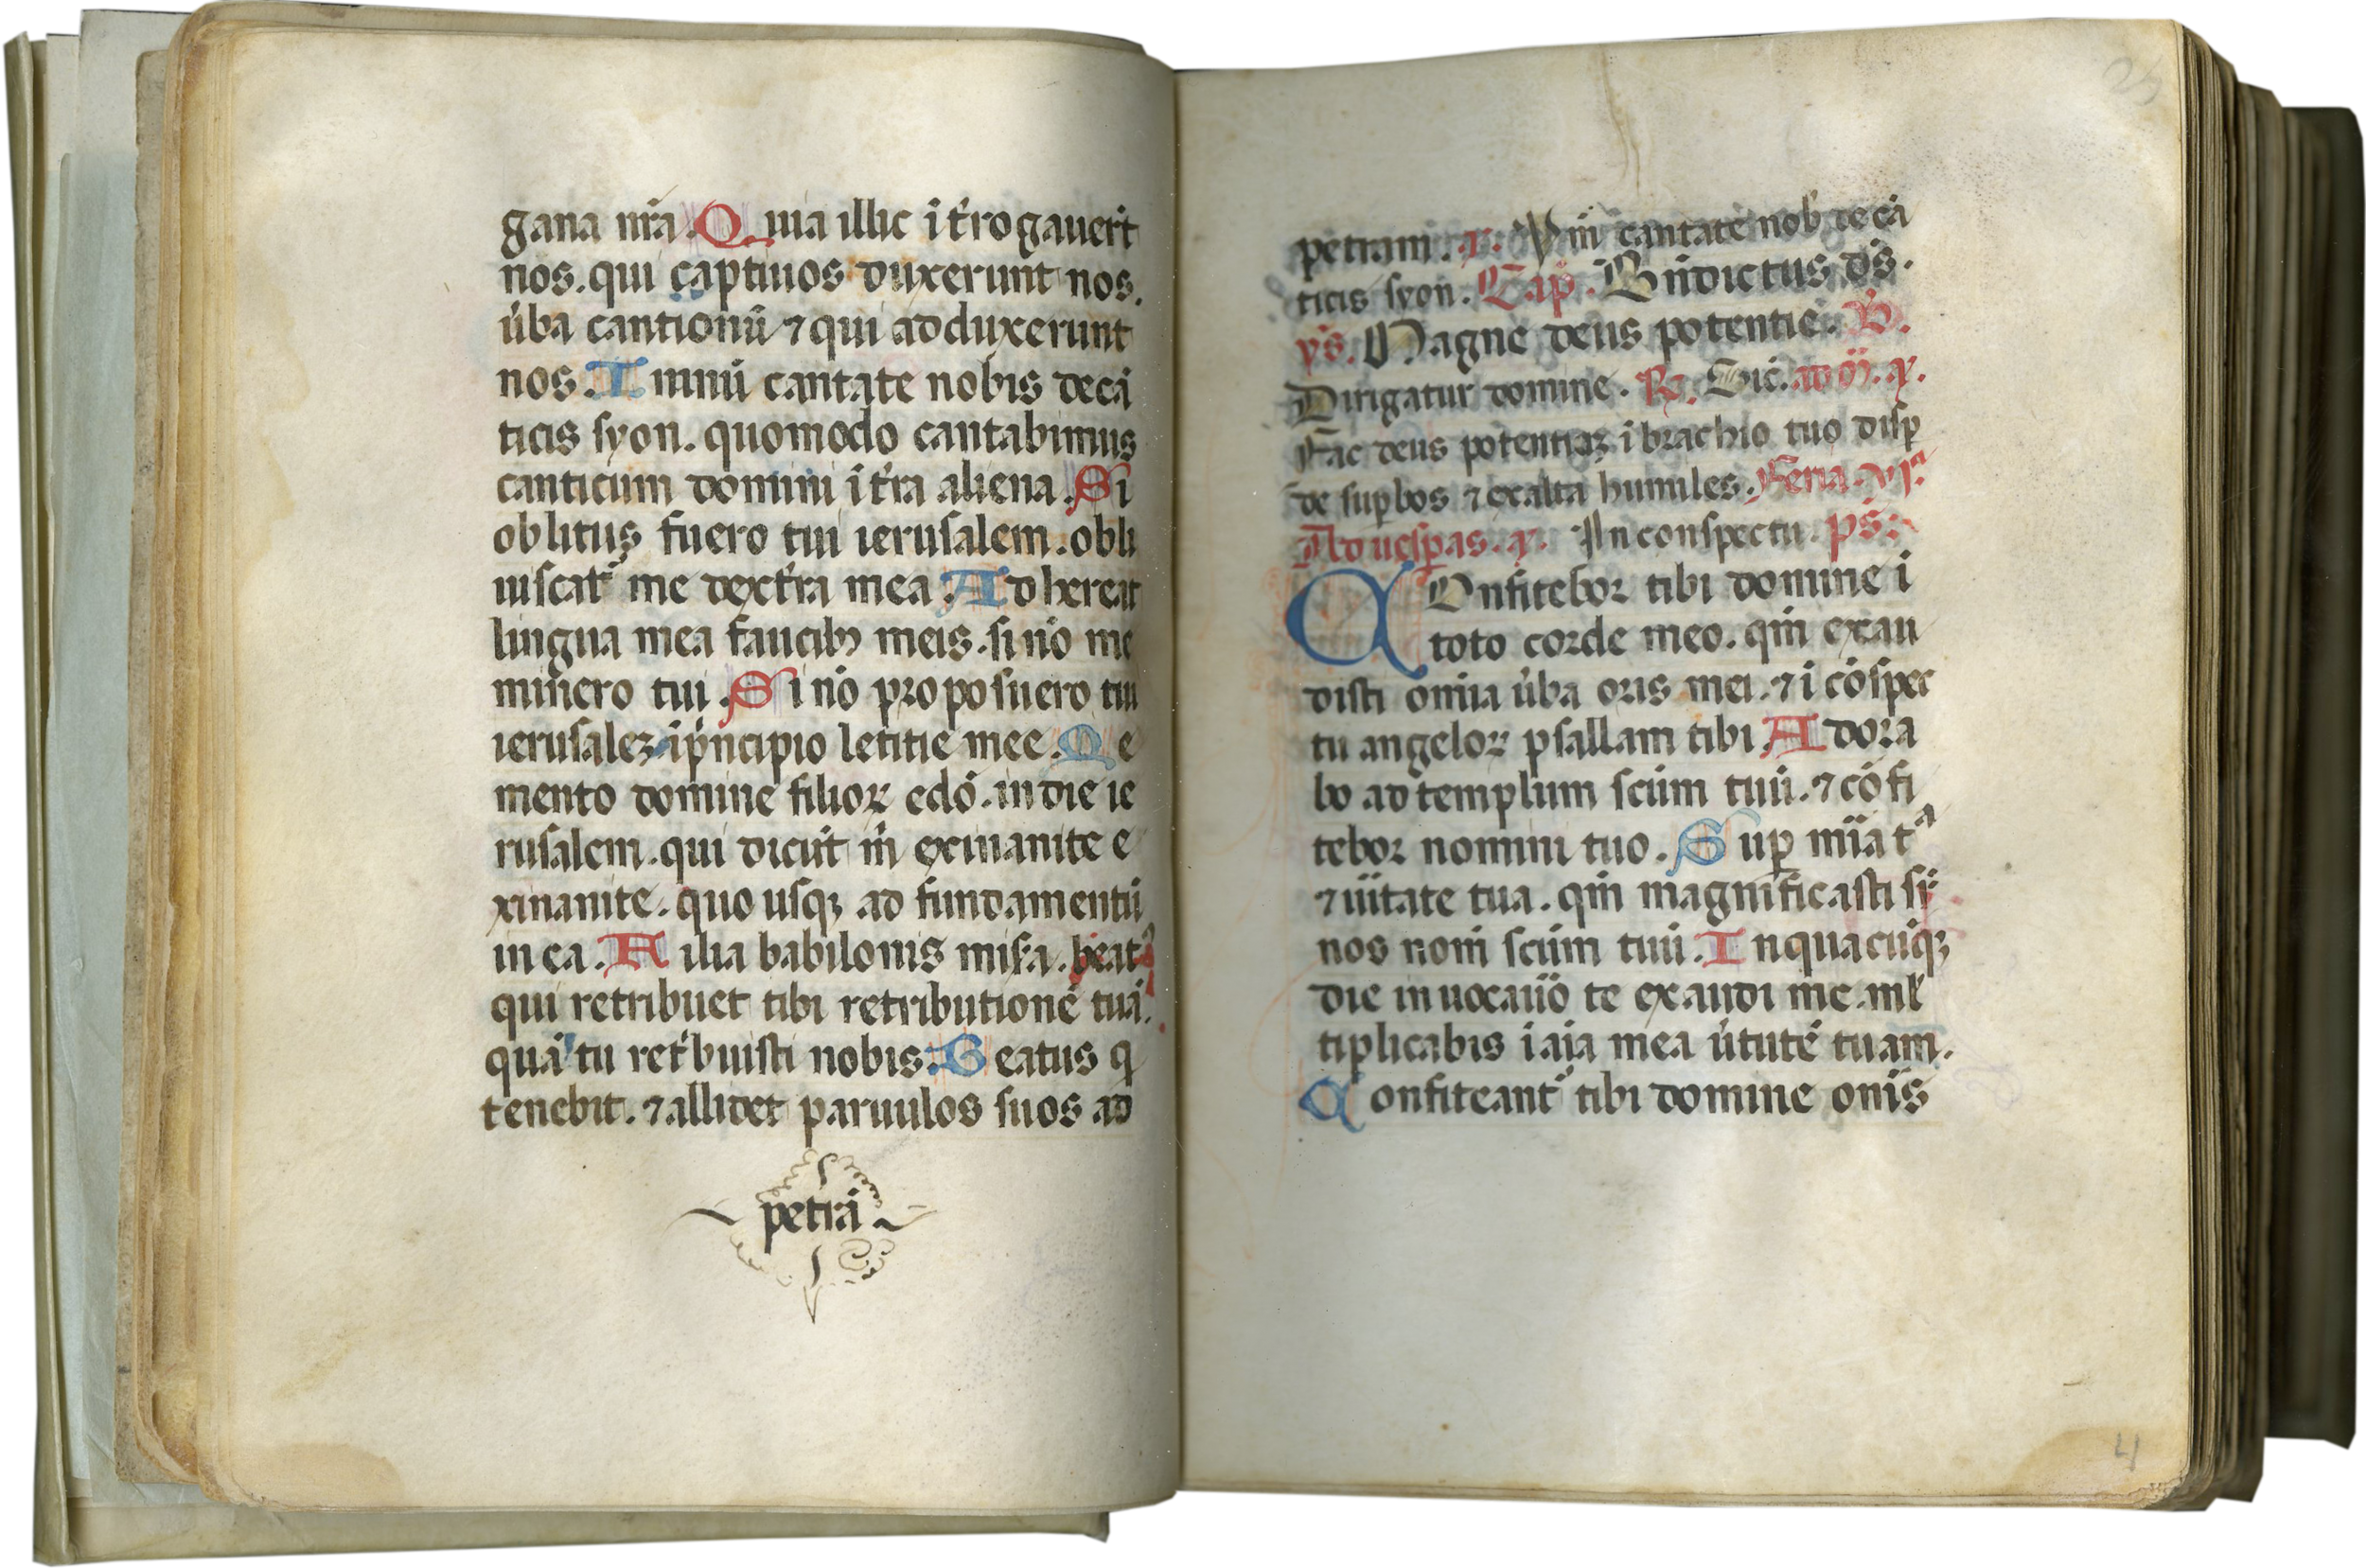 gana nr̄a. Quia illic i t̄rogauer̄t
nos. qui captiuos duxerunt nos.
u̇ba cantionū ⁊ qui adduxerunt
nos. Imnū cantate nobis de cā
ticis syon. quomodo cantabimus
canticum domini ī t̄ra aliena. Si
oblitus fuero tui ierusalem. obli
uiscat᷑ me dext̄ra mea. Adhereat
lingua mea faucibꝫ meis. si nō me
minero tui. Si nō proposuero tui
ierusaleꝫ. ī pͥncipio letitie mee. Me
mento domine filioꝝ edō. in die ie
rusalem. qui dicūt in exinanite e
xinanite. quo usqꝫ ad fundamentū
in ea. Filia babilonis misa. beatꝰ
qui retribuet tibi retributionē tuā.
quā tu ret̄buisti nobis. Beatus q
tenebit. ⁊ allidet paruulos suos ad
petrā
petram. Ꝟ. Ymn̄ cantate nob̄ de cā
ticis syon. Cap̄. Bn̄dictus ds̄.
ys̄. Magne deus potentie. B.
Dirigatur domine. R. Sic̄. ad m̄. a.
Fac deus potentiaꝫ ī brachio tuo disp̄
de suꝑbos ⁊ exalta humiles. Feria. vjᵃ
Ad uesꝑas. a. In conspectu. ps̄.
COnfitebor tibi domine ī
toto corde meo. qm̄ exau
disti om̄ia u̇ba oris mei. ⁊ ī cōspec
tu angeloꝝ psallam tibi. Adora
bo ad templum scūm tuū. ⁊ cōfi
tebor nomini tuo. Suꝑ mīa tᵃ
⁊ uītate tua. qm̄ magnificasti sr̄
nos nom̄ scūm tuū. In quacūqꝫ
die inuocauō te exaudi me. ml̄
tiplicabis ī aīa mea u̇tutē tuam.
Confiteant᷑ tibi domine om̄s
4